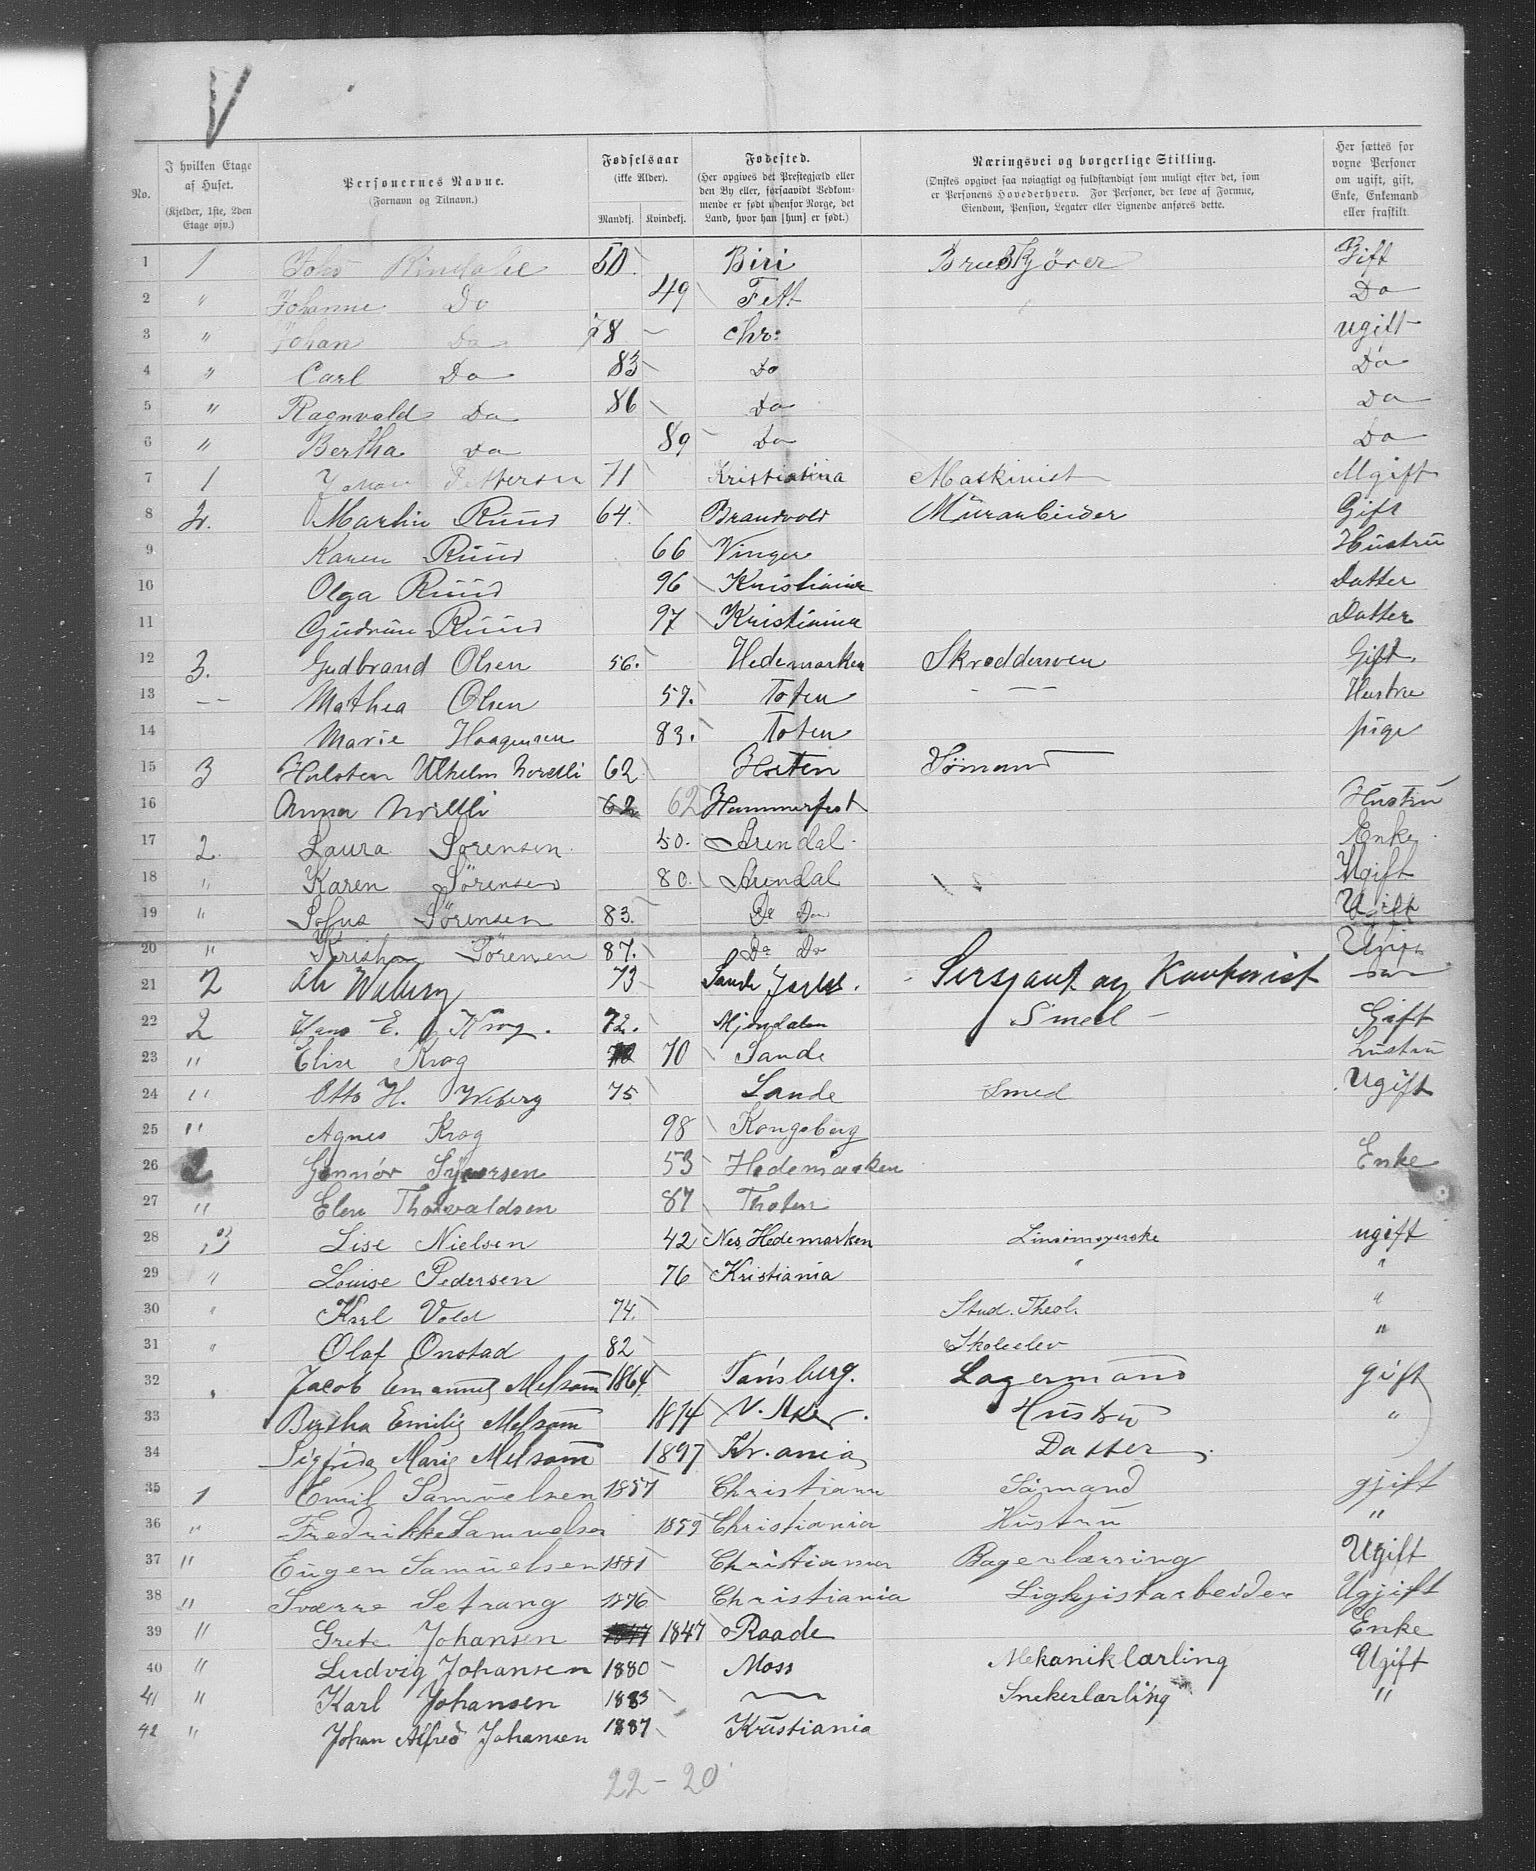 V
No.
I hvilken Etage af Huset. (Kjelder, 1ste, 2den Etage osv.)
Personernes Navne. (Fornavn og Tilnavn.)
Fødselsaar (ikke Alder). Mandkj. Kvindekj.
Fødested. (Her opgives det Prestegjæld eller den By eller, forsaavidt Vedkommende er født udenfor Norge, det Land, hvor han [hun] er født.)
Næringsvei og borgerlige Stilling. (Ønskes opgivet saa nøiagtigt og fuldstændigt som muligt efter det, som er Personens Hovederhverv. For Personer, der leve af Formue, Eiendom, Pension, Legater eller Lignende anføres dette.)
Her sættes for voxne Personer om ugift, gift, Enke, Enkemand eller fraskilt.
1 1 50. Biri Gift
2 " Johanne Do 49 Do
3 " Johan Do 78 — Chr: ugift
4 " Carl Do 83 Do Do
5 " Ragnvald Do 86 Do Do
6 " Bertha Do 89 Do Do
7 1 Pettersen 71 Kristiania Maskinist Ugift
8 2. Martin Ruud 64. Brandvold Murarbeider Gift
9 Karen Ruud 66 Vinger Hustru
10 Olga Ruud 96 Kristiania Datter
11 Gudrun Ruud 97 Kristiania Datter
12 3. Gudbrand Olsen 56. Hedemarken Skræddersven Gift
13 — Mathea Olsen 57. Toten - — Hustru
14 Marie Haagensen 83. Toten pige
15 3 Halsten Wlhelm 62 Horten Sømand
16 Anna 62 Hammerfest Hustru
17 2. Laura Sørensen. 50. Arendal. Enke
18 " Karen Sørensen 80. Arendal Ugift
19 " Sofus Sørensen 83. Do Do Ugift
20 " Sørensen 87. Do Do
21 2 Wiberg 73 Sande Jarls. Sersjant og Do
22 2 Hans E. Krog. 72. Mjøndalen Smed — Gift
23 " Elise Krog 70 Sande Hustru
24 " Otto H. Wiberg 75 Sande Smed Ugift
25 " Agnes Krog 98 Kongsberg
26 2 53 Hedemarken Enke
27 " Elen Thorvaldsen 87 Thoten
28 3 Lise Nielsen 42 Nes, Hedemarken Linsømsyerske ugift
29 " Louise Pedersen 76 Kristiania " "
30 " Karl Vold 74. Stud. Theol. "
31 " Olaf Onstad 82 Skoleelev "
32 Jacob Emanuel Melsom 1864 Tønsberg. Lagermand gift
33 Bertha Emilie Melsom 1874 V. Aker. Hustru "
34 Sigfrida Marie Melsom 1897 Kr.ania Datter.
35 1 Emil Samuelsen 1857 Christiania Sømand gjift
36 " Fredrikke Samuelsen 1859 Christiania Hustru "
37 " Eugen Samuelsen 1881 Christiania Bagerlærring Ugift
38 " Sværre Setrang 1876 Christiania Ugjift
39 " Grete Johansen 1847 Raade Enke
40 " Ludvig Johansen 1880 Moss Mekaniklærling Ugift
41 " Karl Johansen 1883 — Snekerlærling "
42 " Johan Alfred Johansen 1887 Kristiania
22 - 20